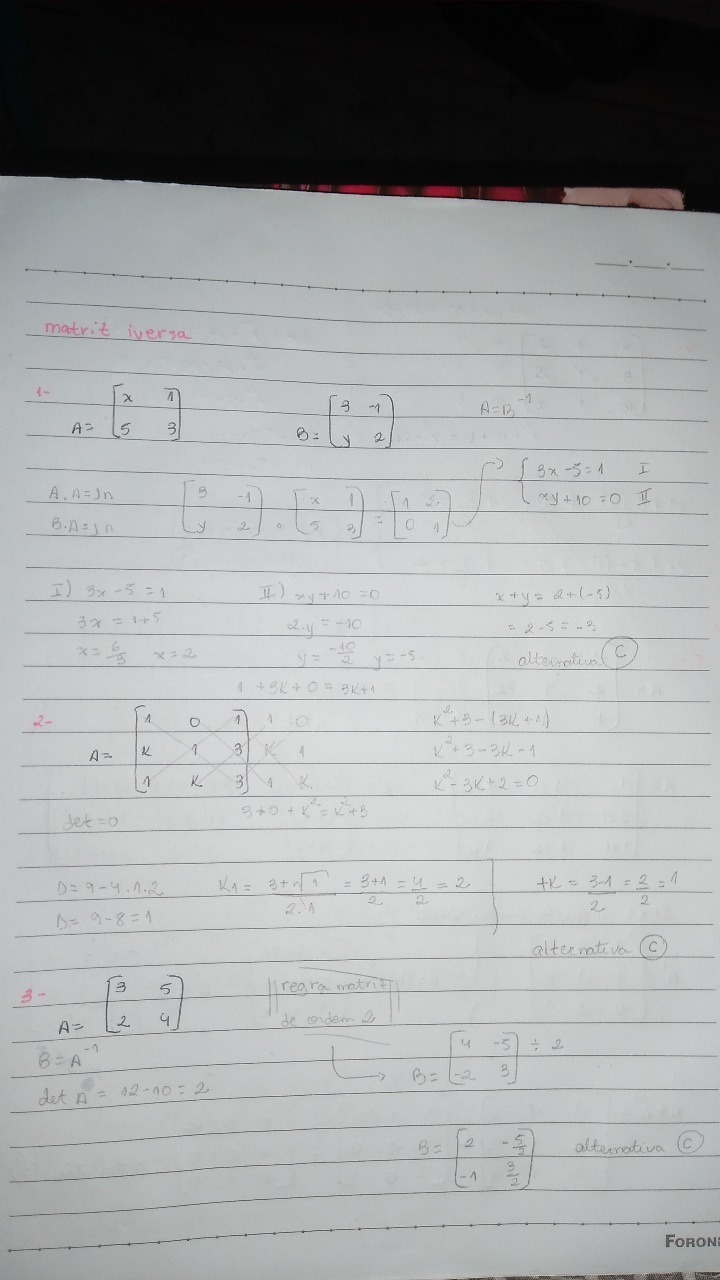 matriz iversa
1-
A= [x 1
5 3]
B= [3 -1
y 2]
A=B⁻¹
A.A=Jn
B.A=Jn
[3 -1
y 2] . [x 1
5 3] = [1 2
0 1]
{ 3x-5=1 I
xy+10=0 II
I) 3x-5=1
3x = 1+5
x= 6/3 x=2
II) xy+10=0
2.y = -10
y= -10/2 y=-5
x+y= 2+(-5)
= 2-5=-3
alternativa C
1+3K+0=3K+1
2-
A= [1 0 1] 1 0
[K 1 3] K 1
[1 K 3] 1 K
3+0+K²=K²+3
det=0
K²+3-(3K+1)
K²+3-3K-1
K²-3K+2=0
D=9-4.1.2
D=9-8=1
K1= 3+√1/2.1 = 3+1/2 = 4/2 = 2
+K = 3-1/2 = 2/2 = 1
alternativa C
3-
A= [3 5
2 4]
regra matriz
de ordem 2
B=A⁻¹
det A = 12-10=2
B= [4 -5
-2 3] ÷ 2
B= [2 -5/2
-1 3/2]
alternativa C
FORON